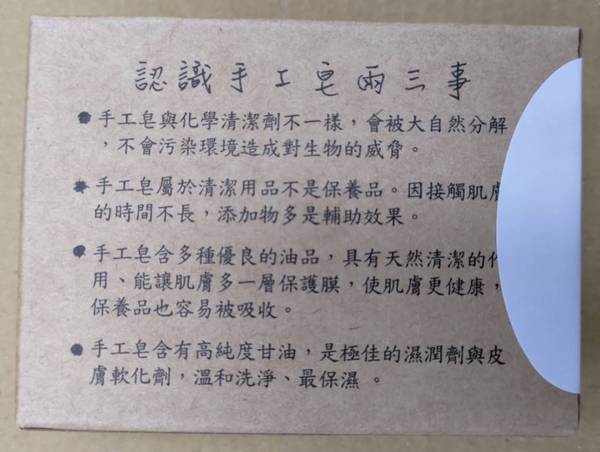 認識手工皂兩三事
手工皂與化學清潔劑不一樣，會被大自然分解
，不會污染環境造成對生物的威脅。
手工皂屬於清潔用品不是保養品。因接觸肌膚
的時間不長，添加物多是輔助效果。
手工皂含多種優良的油品，具有天然清潔的作
用、能讓肌膚多一層保護膜，使肌膚更健康，
保養品也容易被吸收。
手工皂含有高純度甘油，是極佳的濕潤劑與皮
膚軟化劑，溫和洗淨、最保濕。